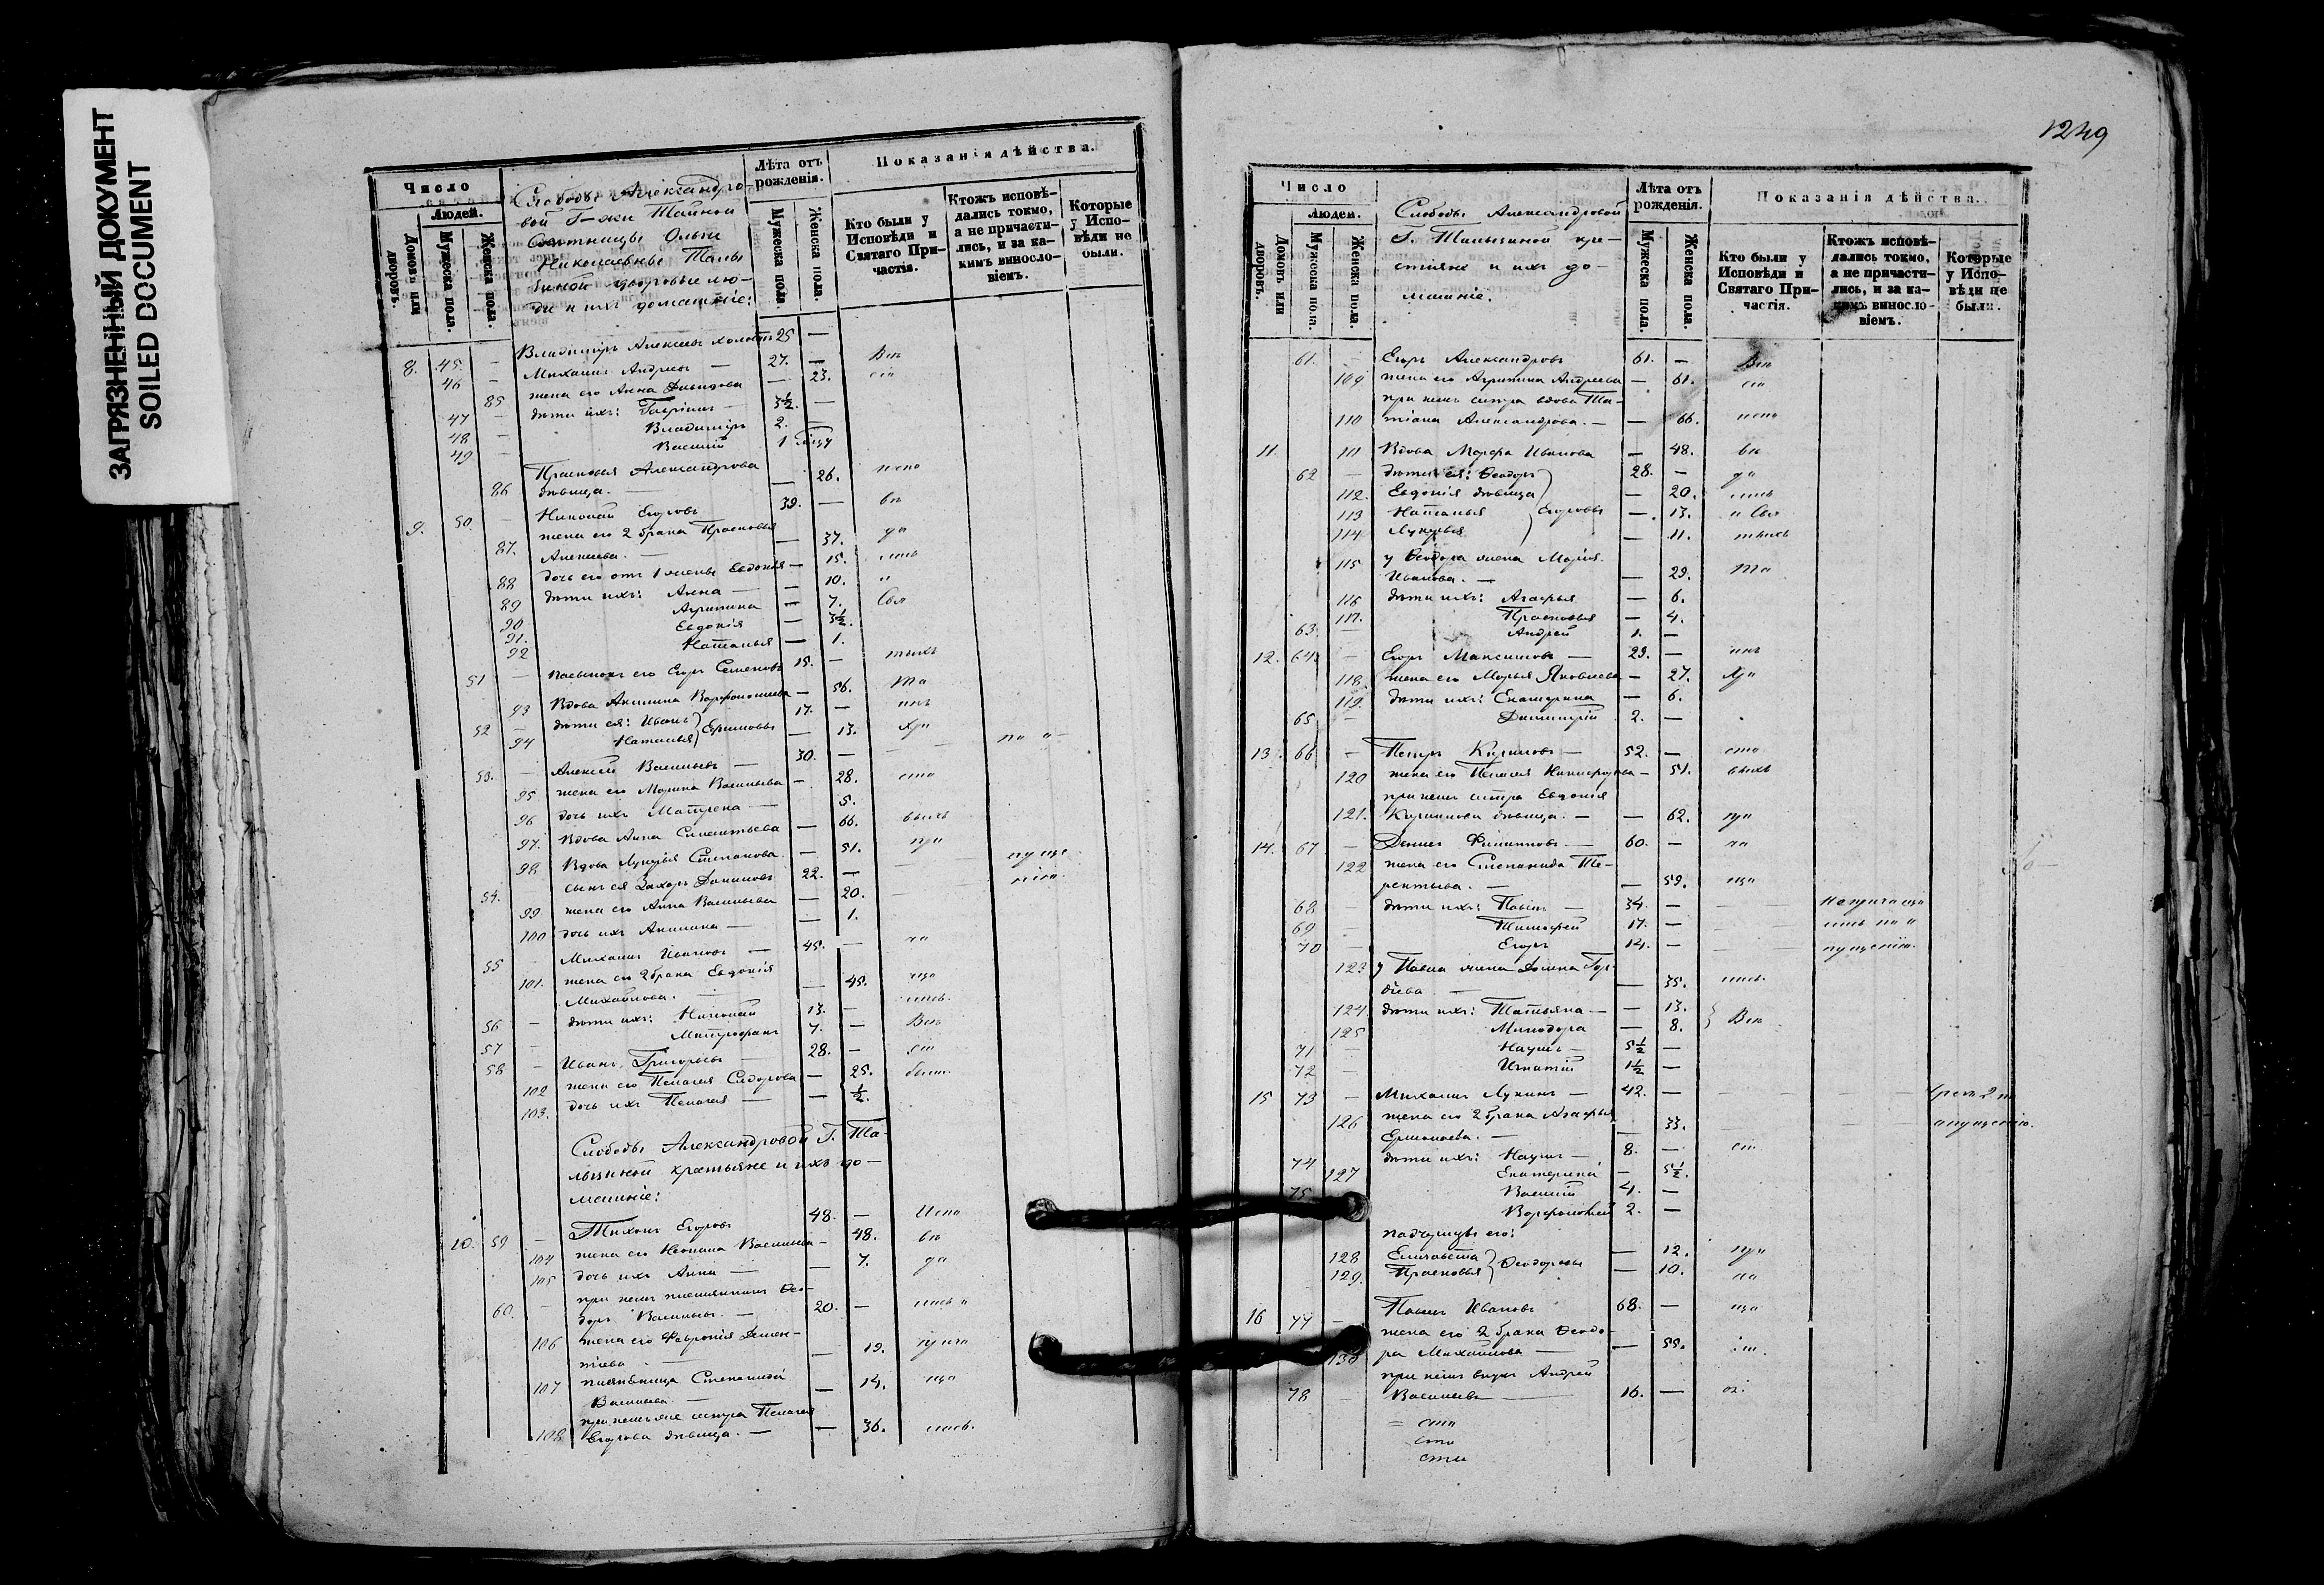 ЗАГРЯЗНЕННЫЙ ДОКУМЕНТ
SOILED DOCUMENT
Число
Людей.
Домовъ или дворовъ.
Мужеска пола.
Женска пола.
Слободы Александро-
вой Г-жи Тайной
Совѣтницы Ольги
Николаевны Талы
зиной дворовые лю-
ди и ихъ домашніе:
Лѣта отъ рожденія.
Мужеска пола.
Женска пола.
Показанія дѣйства.
Кто были у Исповѣди и Святаго Причастія.
Ктожъ исповѣ-
дались токмо,
а не причасти-
лись, и за ка-
кимъ винословіемъ.
Которые у Исповѣди не были.
Владиміръ Алексѣевъ холостъ 25 —
8. 45. — Михаилъ Андреевъ — 27. — Всѣ
46 — 85 жена его Анна Давидова — 23.
47 — дѣти ихъ: Гавріилъ — 3½. —
48 — Владиміръ 2. —
49 — Василій 1
Прасковья Александрова
86 дѣвица. — — 26. испо
9. 50. — Николай Егоровъ 39. — вѣ
жена его 2 брака Прасковья
87. Алексѣева. — — 37. да
88 дочь его отъ 1 жены Евдокія — 15. лись
89 дѣти ихъ: Анна — — 10. и
90 Агрипина — 7. Свя
91. Евдокія — 3½.
92 Наталья — 1.
51 — пасынокъ его Егоръ Семеновъ 15. — тыхъ
93 Вдова Акилина Варфоломеева — 56. Та
52 — дѣти ея: Иванъ 17. — инъ
94 Наталья Ефимовы — 13. Хри
53. — Алексѣй Васильевъ — 30. — — по о
95 жена его Марина Васильева — 28. сто
96 дочь ихъ Матрена — 5.
97. Вдова Анна Силентьева — 66. выхъ
98 Вдова Лукерья Степанова — 51. при
54. сынъ ея Захаръ Даниловъ 22. — — пуще
99 жена его Анна Васильева — 20. — нію.
100 дочь ихъ Акилина — — 1.
55 — Михаилъ Ивановъ — 45. — ча
101. жена его 2 брака Евдокія
Михайлова. — — 45. ща
56 — дѣти ихъ: Николай 13. — лись.
57 — Митрофанъ 7. — Всѣ
58 — Иванъ Григорьевъ — 28. —
102 жена его Пелагея Сидорова — 25.
103. дочь ихъ Пелагея — — ½.
Слободы Александровой Г. Та-
лызиной крестьяне и ихъ до-
машніе:
10. 59 — Тихонъ Егоровъ 48. — Испо
104 жена его Неонила Васильева — 48. вѣ
105 дочь ихъ Анна — — 7. да
при немъ племянникъ Ѳео-
60. — доръ Васильевъ. — 20. — лись и
106 жена его Февронія Демен-
тіева. — — 19. прича
107 племянница Степанида
Васильева. — — 14. ща
при немъ же сестра Пелагея
108 Егорова дѣвица. — — 36. лись.
1249
Число
Людей.
Домовъ или дворовъ.
Мужеска пола.
Женска пола.
Слободы Александровой
Г. Талызиной кре-
стьяне и ихъ до-
машніе.
Лѣта отъ рожденія.
Мужеска пола.
Женска пола.
Показанія дѣйства.
Кто были у Исповѣди и Святаго Причастія.
Ктожъ исповѣ-
дались токмо,
а не причасти-
лись, и за ка-
кимъ винословіемъ.
Которые у Исповѣди не были.
61. — Егоръ Александровъ 61. — Всѣ
109 жена его Агрипина Андреева — 61.
при немъ сестра вдова Та-
110 тіана Александрова. — — 66. испо
11. 111 Вдова Марфа Иванова — 48. вѣ
62 — дѣти ея: Ѳеодоръ 28. — да
112. Евдокія дѣвица — 20. лись
113 Наталья Егоровы — 13. и Свя
114 Лукерья — 11. тыхъ
115 у Ѳеодора жена Марія
Иванова. — — 29. Та
116 дѣти ихъ: Агафья — 6.
117. Прасковья — 4.
63. — Андрей 1. —
12. 64. — Егоръ Максимовъ — 29. — инъ
118. жена его Марья Яковлева — 27. Хри
119. дѣти ихъ: Екатерина — 6.
65 — Димитрій 2. —
13. 66 — Петръ Кириловъ — 52. — сто
120 жена его Пелагея Никифорова — 51. выхъ
при немъ сестра Евдокія
121. Кирилова дѣвица. — — 62. при
14. 67 — Денисъ Филиповъ. — 60. — ча
122 жена его Степанида Те-
рентьева. — — 59. ща
68 — дѣти ихъ: Павелъ — 34. — — не прича ща
69 — Тимофей 17. — — лись по о
70 — Егоръ 14. — — пущенію.
123 у Павла жена Домна Гор-
дѣева. — — 35. лись.
124. дѣти ихъ: Татьяна — — 13.
125 Минодора — 8. Всѣ
71 — Наумъ — 5½ —
72 — Игнатій 1½ —
15 73 — Михаилъ Лукинъ — 42. — — — —
126 жена его 2 брака Агафья
Ермолаева. — — 33. — — опущенію.
74 дѣти ихъ: Наумъ — 8. —
127 Екатерина — 5½.
75 Василій 4. —
Варфоломей 2. —
падчерицы его:
128 Елизавета — 12. при
129. Прасковья Ѳеодоровы — 10. ча
16 77 — Павелъ Ивановъ 68. — ща
жена его 2 брака Ѳеодо-
130 ра Михайлова — — 55.
при нихъ внукъ Андрей
78 — Васильевъ — 16. —